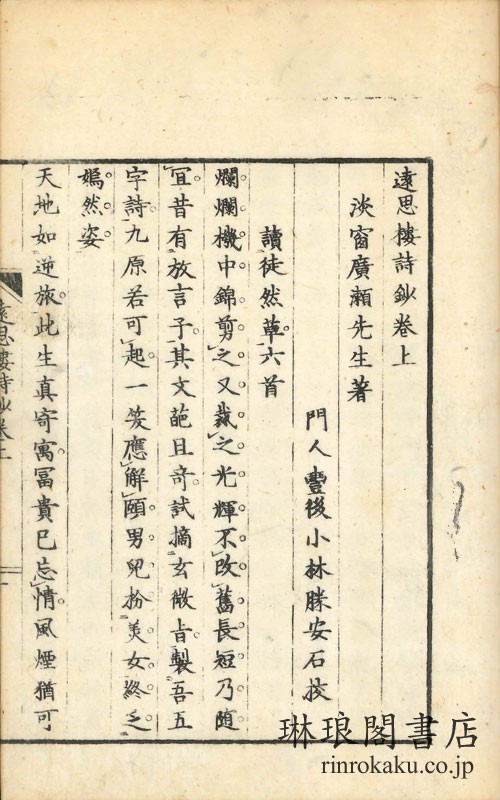 遠思樓詩鈔卷上
淡窗廣瀨先生著
門人豐後小林勝安石挍
讀徒然草六首
爛爛機中錦剪之又裁之光輝不改舊長短乃隨
宜昔有放言子其文葩且奇試摘玄微旨製吾五
字詩九原若可起一笑應解頤男兒扮美女終乏
嫣然姿
天地如逆旅此生真寄寓冨貴已忘情風煙猶可
遠思樓詩鈔卷上
一
琳琅閣書店
rinrokaku.co.jp